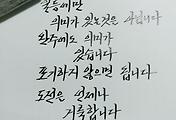 일등에만
의미가 있는것은 아닙니다
완주에도 의미가
있습니다
포기하지 않으면 됩니다
도전은 언제나
거룩합니다